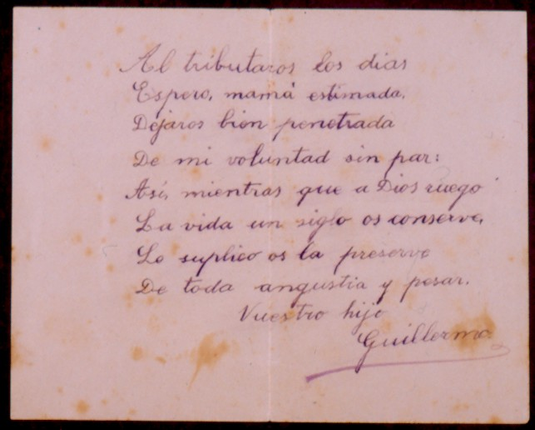 Al tributaros los dias
Espero, mamá estimada,
Dejaros bien penetrada
De mi voluntad sin par:
Así, mientras que a Dios ruego
La vida un siglo os conserve,
Le suplico os la preserve
De toda angustia y pesar.
Vuestro hijo
Guillermo